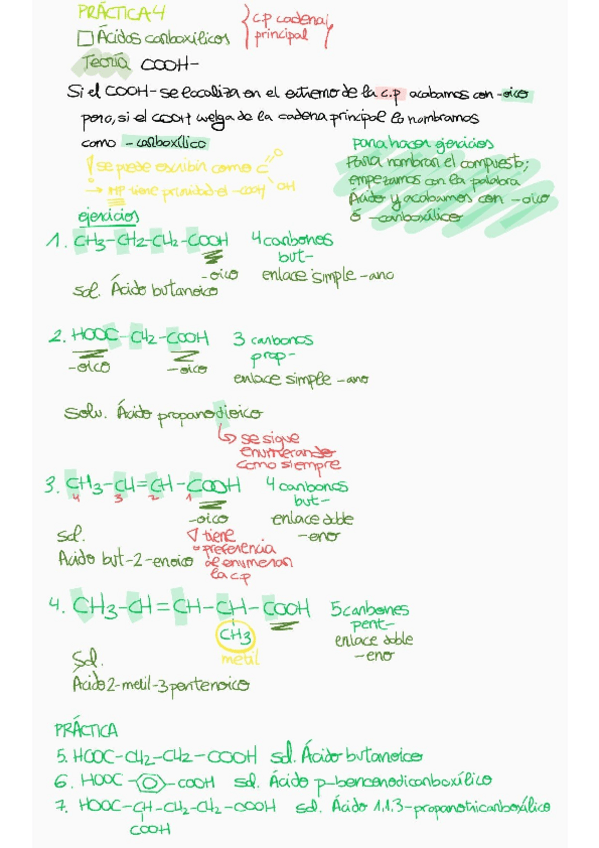 PRÁCTICA 4
{ c.p cadena
principal
□ Ácidos carboxílicos
Teoría COOH-
Si el COOH- se localiza en el extremo de la c.p acabamos con -oico
pero, si el COOH welga de la cadena principal lo nombramos
como -carboxílico
! se puede escribir como C=O
OH
→ MP tiene prioridad el -COOH
para hacer ejercicios
Para nombrar el compuesto;
empezamos con la palabra
Ácido y acabamos con -oico
ó -carboxílico
ejercicios
1. CH3-CH2-CH2-COOH 4 carbonos
but-
-oico enlace simple -ano
sol. Ácido butanoico
2. HOOC-CH2-COOH 3 carbonos
prop-
-oico -oico
enlace simple -ano
Soluv. Ácido propanodioico
↳ se sigue
enumerando
como siempre
3. CH3-CH=CH-COOH 4 carbonos
4 3 2 1 but-
-oico enlace doble
-eno
sol. ∇ tiene
preferencia
Ácido but-2-enoico al enumerar
la c.p
4. CH3-CH=CH-CH-COOH 5 carbones
pent-
CH3 enlace doble
metil -eno
Sol.
Ácido 2-metil-3pentenoico
PRÁCTICA
5. HOOC-CH2-CH2-COOH sol. Ácido butanoico
6. HOOC-⌬-COOH sol. Ácido p-bencenodicarboxílico
7. HOOC-CH-CH2-CH2-COOH sol. Ácido 1,1,3-propanotricarboxílico
COOH